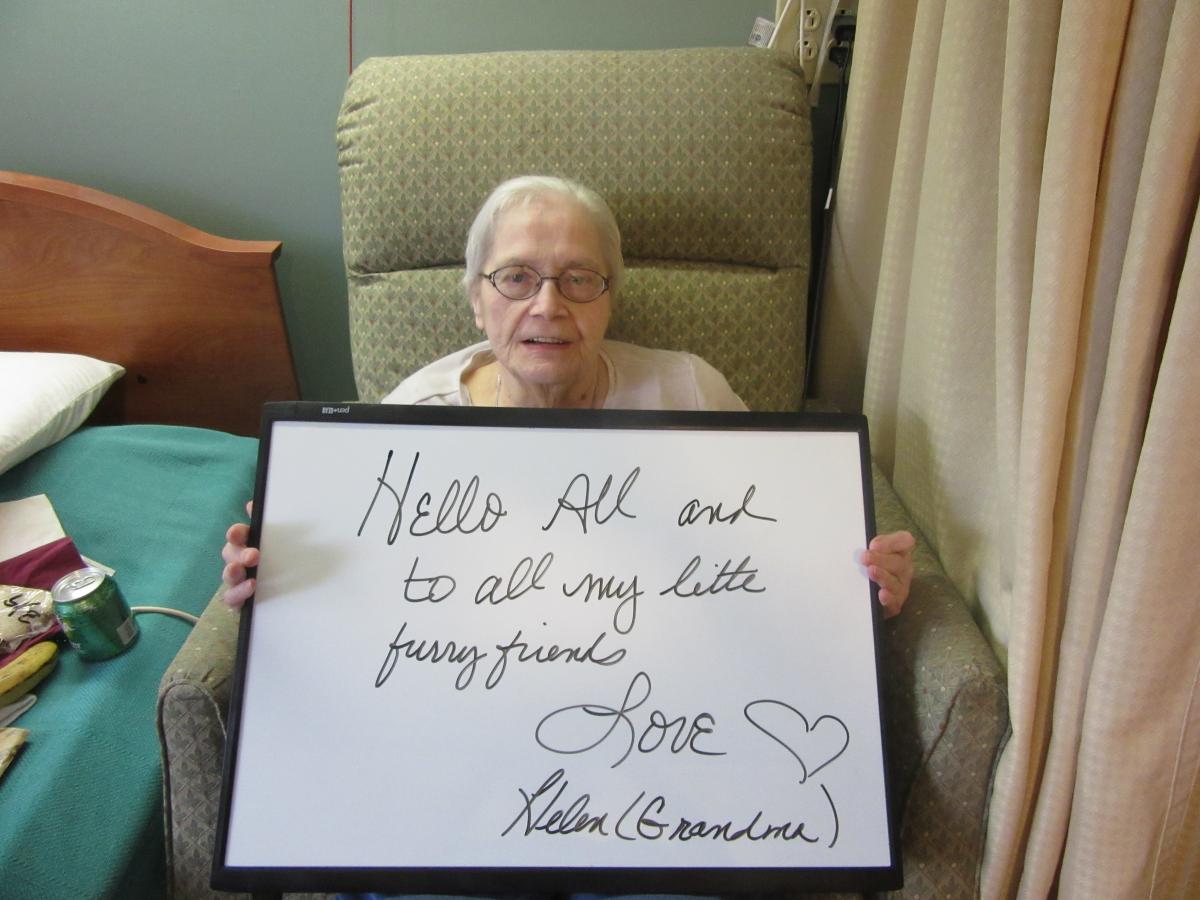 Hello All and
to all my little
furry friends
Love ♡
Helen (Grandma)